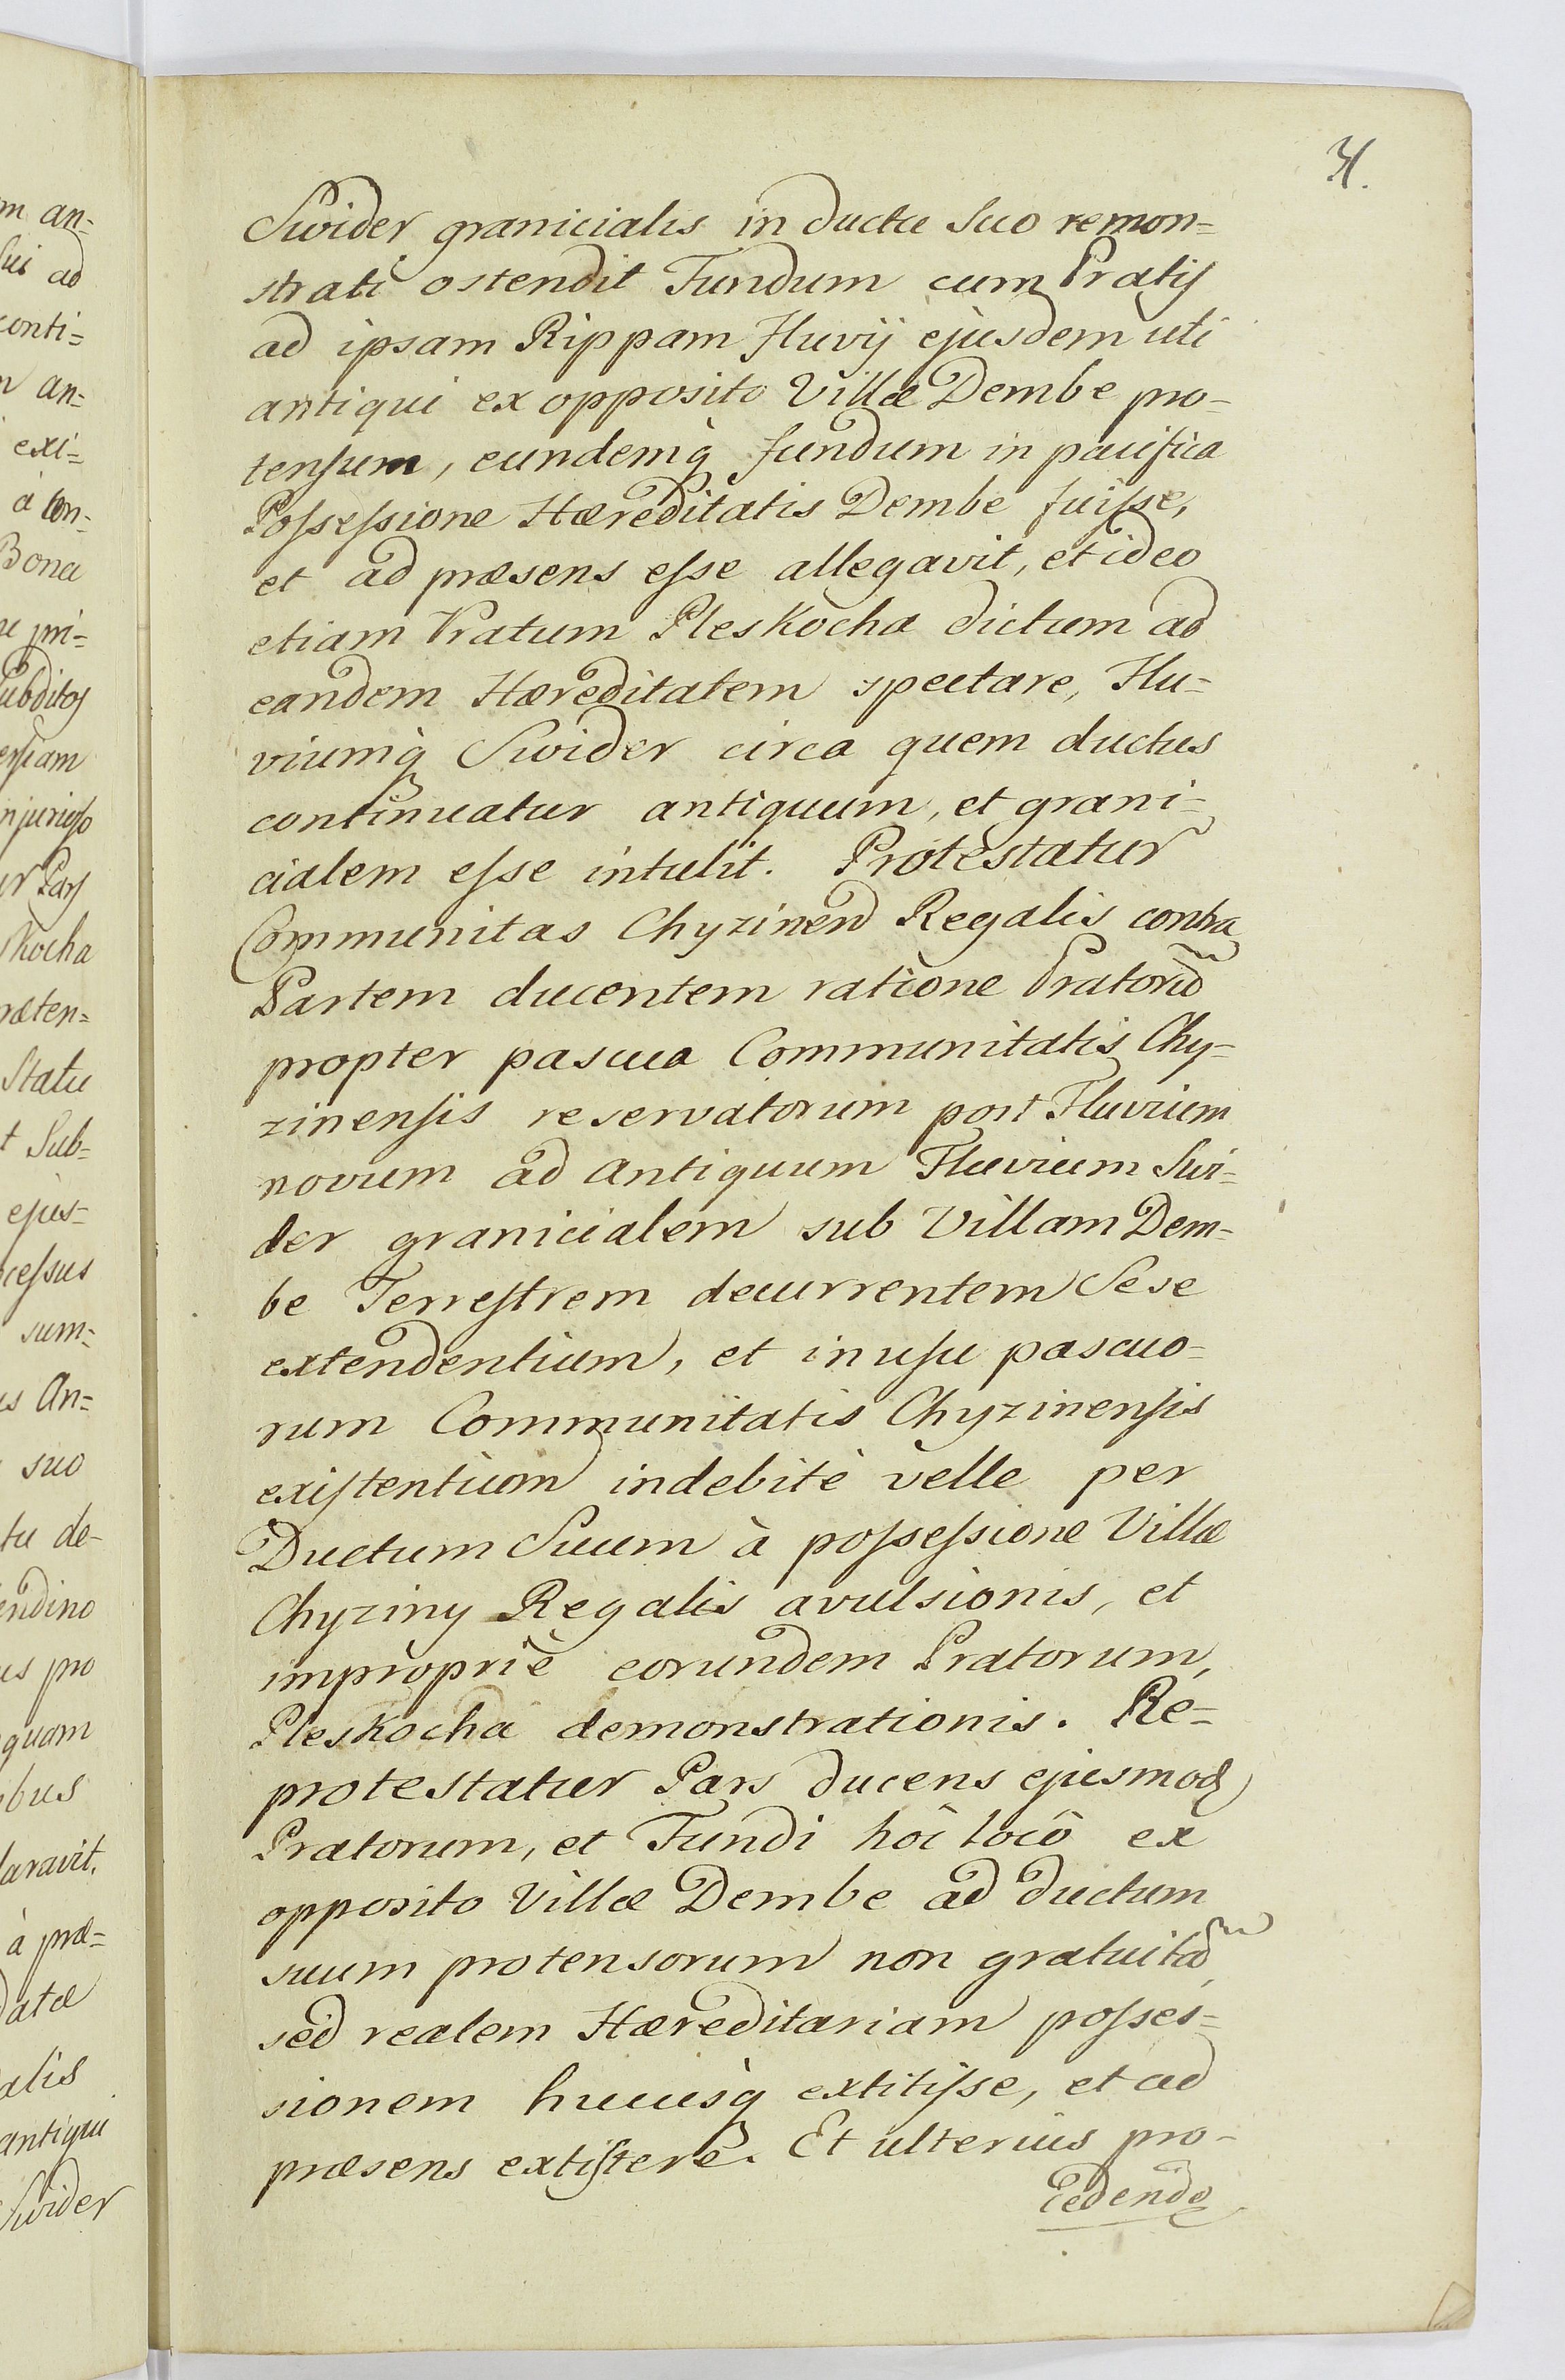 31.
Swider granicialis in ductu suo remon=
strati ostendit Fundum cum Pratis
ad ipsam Rippam Fluvij ejusdem uti
antiqui ex opposito Villæ Dembe pro-
tensum, eundemq̀ fundum in pacifica
Possessione Hæreditatis Dembe fuisse,
et ad præsens esse allegavit, et ideo
etiam Pratum Pleskocha dictum ad
eandem Hæreditatem spectare, Flu=
viumq̀ Swider circa quem ductus
continuatur antiquum, et grani=
cialem esse intulit. Protestatur
Communitas Chyzinen Regalis contra
Partem ducentem ratione Pratorũ
propter pascua Communitatis Chy=
zinensis reservatorum post Fluvium
novum ad antiquum Fluvium Swi=
der granicialem sub Villam Dem=
be Terrestrem decurrentem Sese
extendentium, et in usu pascuo=
rum Communitatis Chyzinensis
existentium indebitè velle per
Ductum Suum à possessione Villæ
Chyziny Regalis avulsionis, et
impropriè eorundem Pratorum,
Pleskocha demonstrationis. Re=
protestatur Pars ducens ejusmod
Pratorum, et Fundi hôc locô ex
opposito Villæ Dembe ad ductum
suum protensorum non gratuitã,
sed realem Hæreditariam posses=
sionem hucusq̀ extitisse, et ad
præsens extistere. Et ulterius pro-
cedendo
m an=
sui ad
conti=
n an=
exi=
à con-
Bona
pri=
subditos
ersiam
njurioso
ur Pars
skocha
ræten=
Statu
t Sub=
ejus=
cessus
sum=
us An=
suo
tu de-
endino
us pro
quam
ibus
laravit.
à præ=
datæ
alis
antiqui
Swider